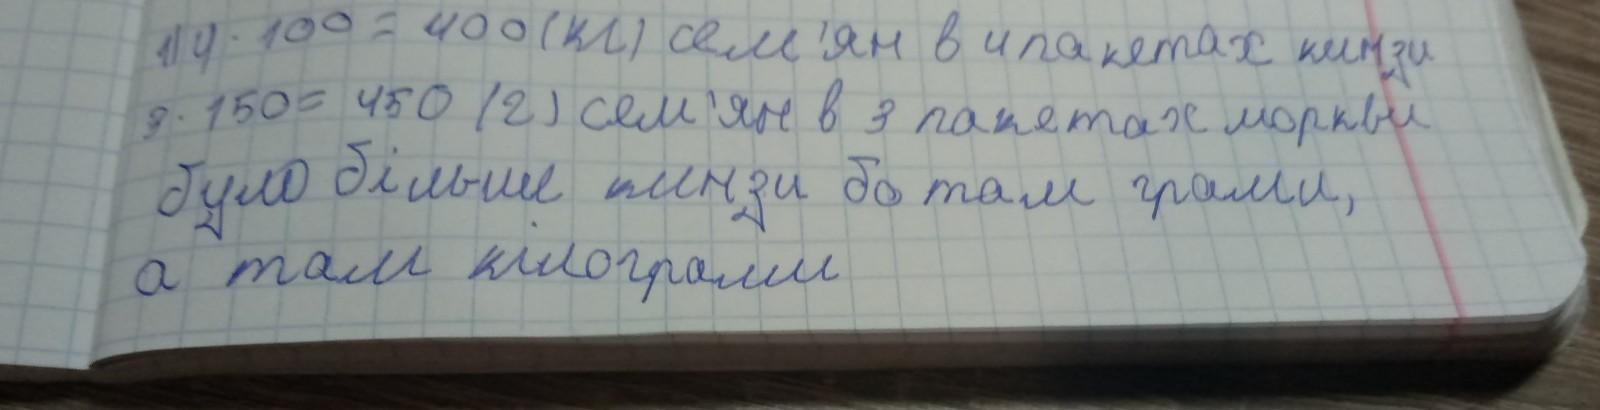 1) 4 · 100 = 400 (кг) сем'ян в 4 пакетах кинзи
3 · 150 = 450 (г) сем'ян в 3 пакетах моркви
було більше кинзи бо там грами,
а там кілограми